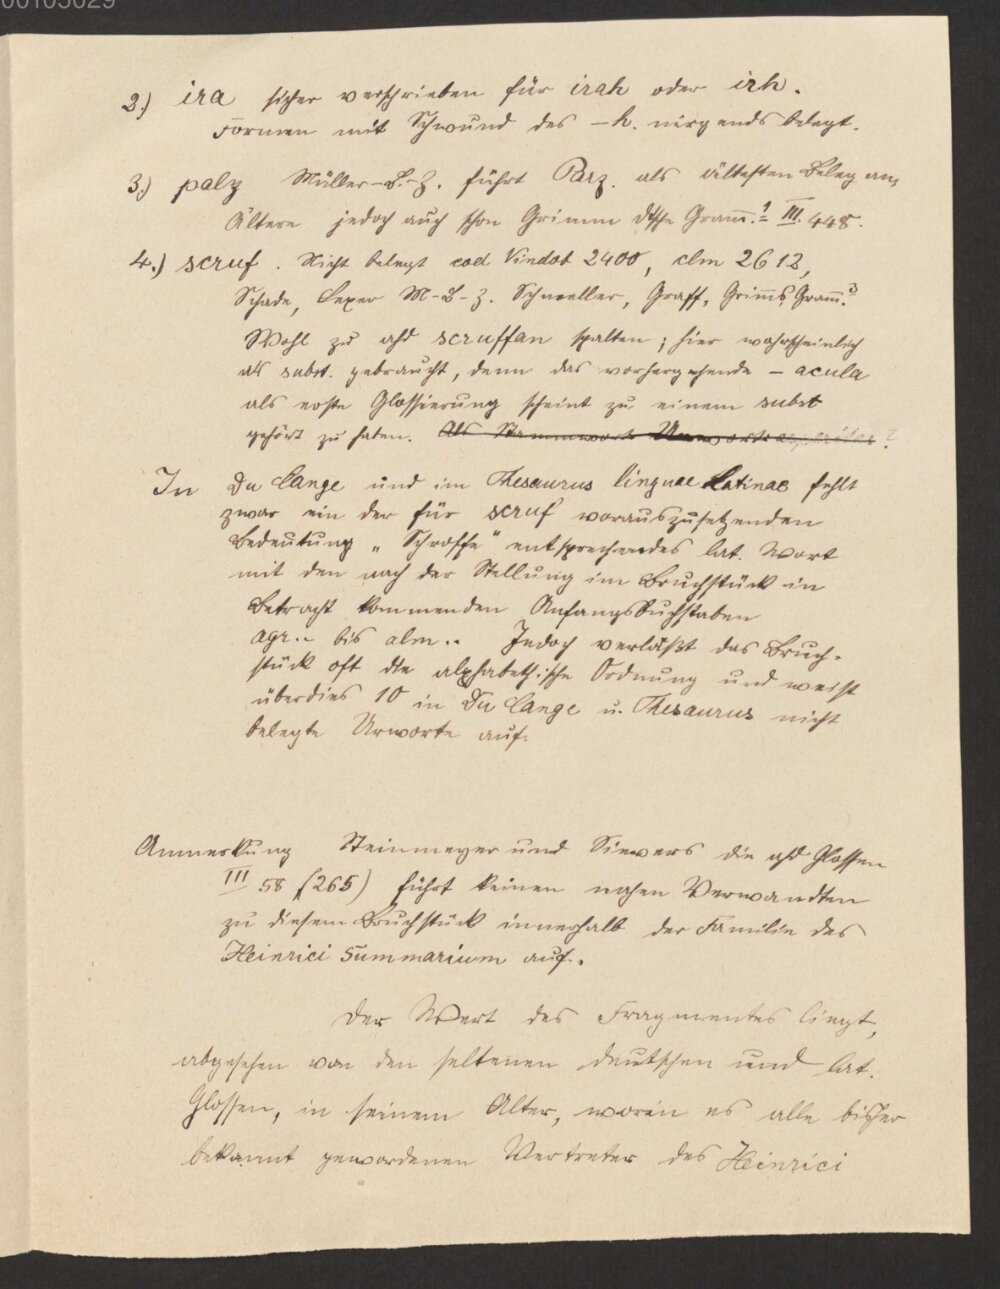 00105029
2.) ira sicher verschrieben für irah oder irh.
Formen mit Schwund des -h. nirgends belegt.
3.) palz Müller-B.-Z. führt Parz. als ältesten Beleg an,
Ältere jedoch auch schon Grimm dtsche Gram̅.¹ III. 448.
4.) scruf. Nicht belegt cod Vindob 2400, clm 2612,
Schade, Lexer M-B-Z. Schmeller, Graff, Grimms Gram̅.³
Wohl zu ahd scruffan spalten; hier wahrscheinlich
als subst. gebraucht, denn das vorhergehende - acula
als erste Glossierung scheint zu einem subst
gehört zu haben. Als Stammwort
In Du Cange und im Thesaurus linguae Latinae fehlt
zwar ein der für scruf vorauszusetzenden
Bedeutung „Schroffe" entsprechendes lat. Wort
mit den nach der Stellung im Bruchstück in
Betracht kommenden Anfangsbuchstaben
agr.- bis alm.. Jedoch verläßt das Bruch-
stück oft die alphabethische Ordnung und weist
überdies 10 in Du Cange u. Thesaurus nicht
belegte Urworte auf.
Anmerkung Steinmeyer und Sievers die ahd Glossen
III 58 (265) führt keinen nahen Verwandten
zu diesem Bruchstück innerhalb der Familie des
Heinrici Summarium auf.
Der Wert des Fragmentes liegt,
abgesehen von den seltenen deutschen und lat.
Glossen, in seinem Alter, worin es alle bisher
bekannt gewordenen Vertreter des Heinrici